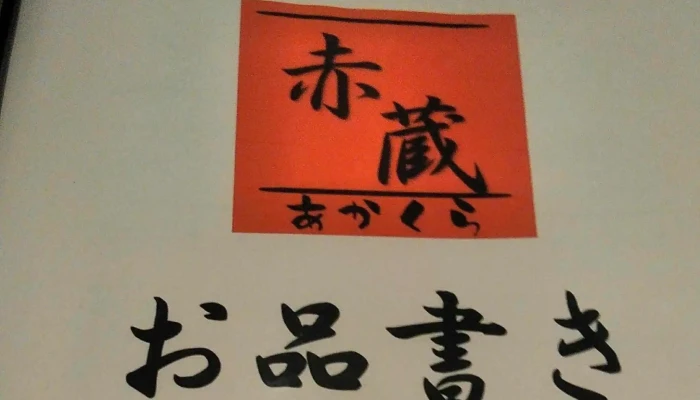 赤蔵
あかくら
お品書き